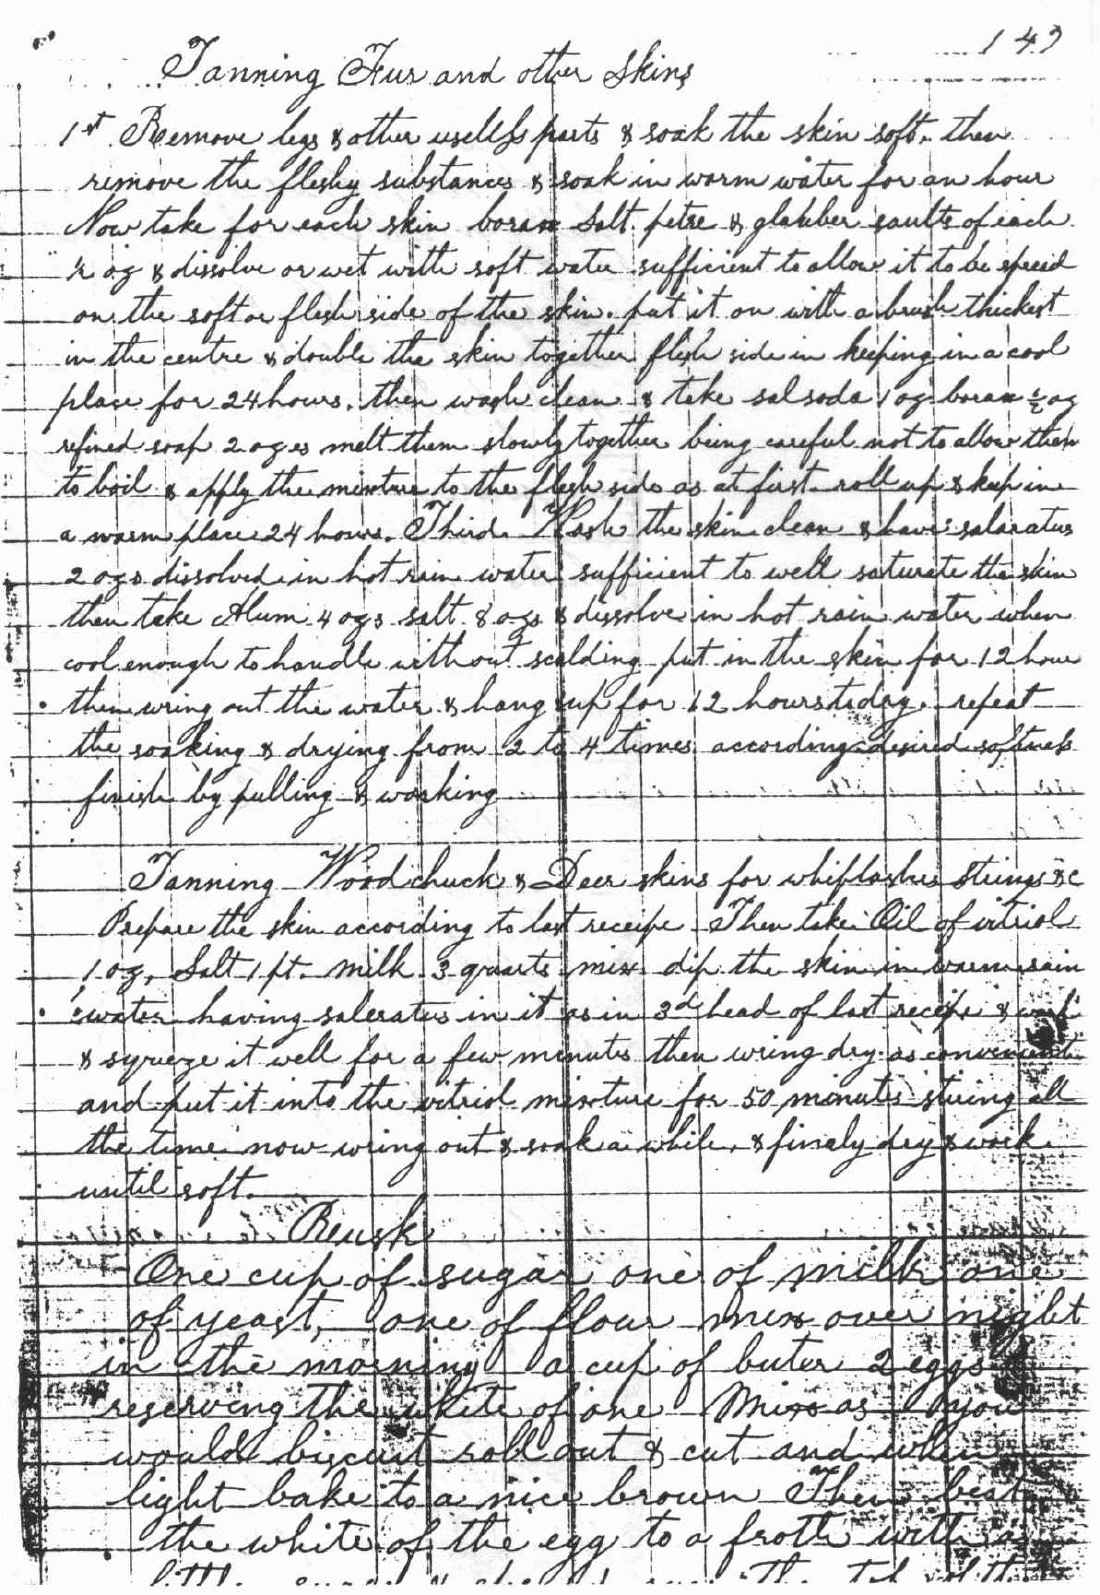 149
Tanning Fur and other Skins
1st Remove legs & other useless parts & soak the skin soft. then
remove the fleshy substances & soak in warm water for an hour
Now take for each skin borax Salt petre & glauber saults of each
½ oz & dissolve or wet with soft water sufficient to allow it to be spread
on the soft or flesh side of the skin. put it on with a brush thickest
in the centre & double the skin together flesh side in keeping in a cool
place for 24 hours. then wash clean & take sal soda 1 oz borax ½ oz
refined soap 2 ozes melt them slowly together being careful not to allow them
to boil & apply the mixture to the flesh side as at first roll up & keep in
a warm place 24 hours. Third. Wash the skin clean & have salaratus
2 ozs dissolved in hot rain water sufficient to well saturate the skin
then take Alum 4 ozs salt 8 ozs & dissolve in hot rain water when
cool enough to handle without scalding put in the skin for 12 hours
then wring out the water & hang up for 12 hours to dry. repeat
the soaking & drying from 2 to 4 times according desired softness
finish by pulling & working
Tanning Woodchuck & Deer skins for whiplashes Strings &c
Prepare the skin according to last receipe Then take Oil of vitriol
1 oz, Salt 1 pt. milk 3 quarts mix dip the skin in warm rain
water having saleratus in it as in 3d head of last receipe & work
& sqrueze it well for a few minutes then wring dry as convenient
and put it into the vitriol mixture for 50 minutes stiring all
the time now wring out & soak a while, & finely dry & work
until soft.
Reusk
One cup of sugar one of milk one
of yeast, one of flour mix over night
in the morning a cup of buter 2 eggs
reserving the white of one Mix as you
would biscuit roll out & cut and when
light bake to a nice brown Then beat
the white of the egg to a froth with a